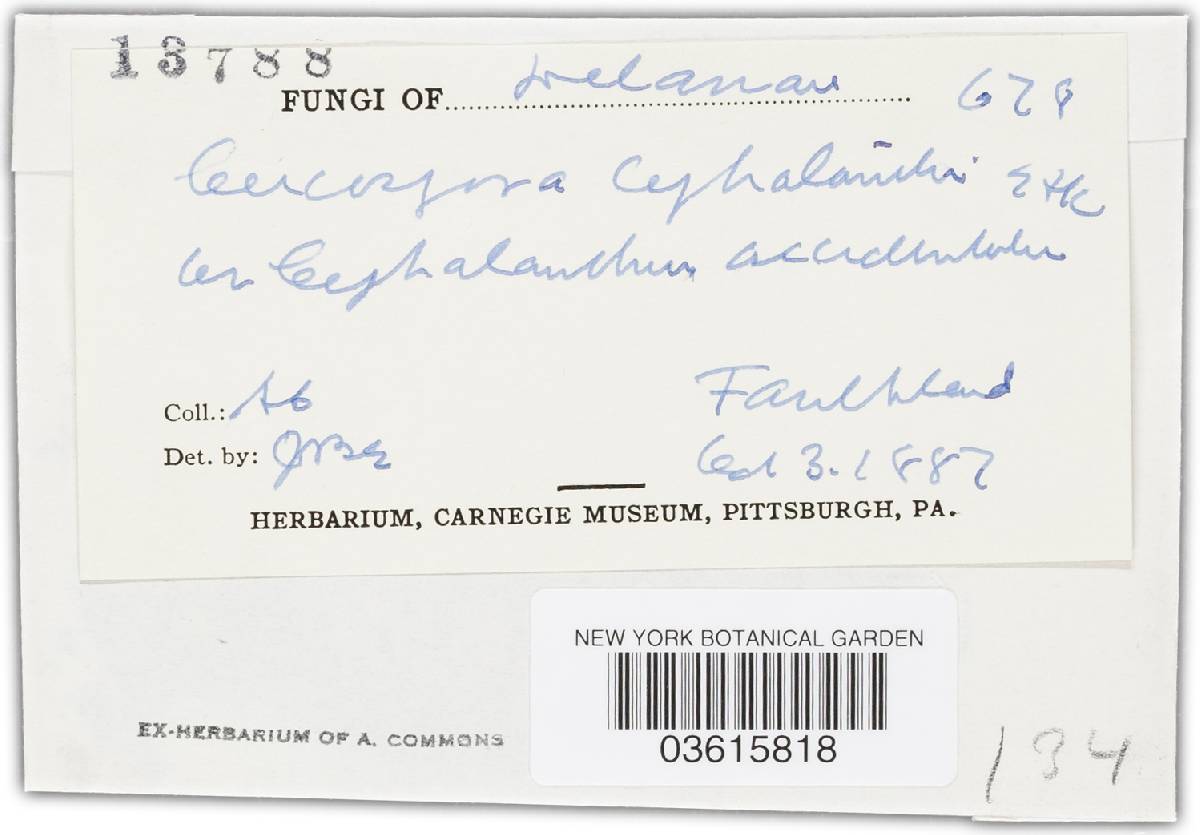 13788
FUNGI OF Delaware 678
Cercospora Cephalanthi E & K
on Cephalanthus occidentalis
Coll.: AC
Det. by: JBE
Faulkland
Oct 3. 1887
HERBARIUM, CARNEGIE MUSEUM, PITTSBURGH, PA.
NEW YORK BOTANICAL GARDEN
03615818
EX-HERBARIUM OF A. COMMONS
134